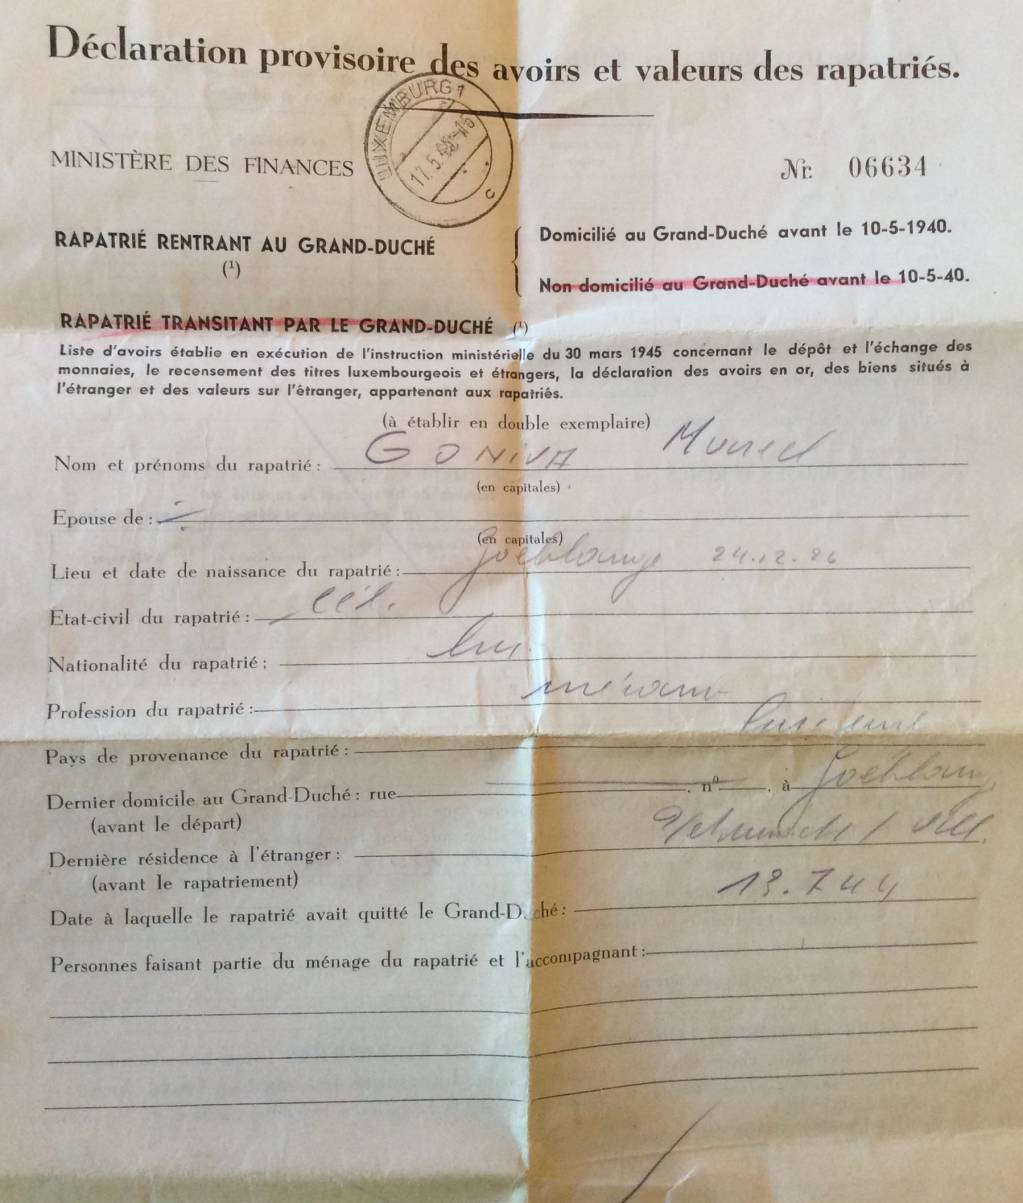 Déclaration provisoire des avoirs et valeurs des rapatriés.
LUXEMBURG 1
17.5.45-15
c
MINISTÈRE DES FINANCES
Nr. 06634
RAPATRIÉ RENTRANT AU GRAND-DUCHÉ
(¹)
{ Domicilié au Grand-Duché avant le 10-5-1940.
Non domicilié au Grand-Duché avant le 10-5-40.
RAPATRIÉ TRANSITANT PAR LE GRAND-DUCHÉ (¹)
Liste d'avoirs établie en exécution de l'instruction ministérielle du 30 mars 1945 concernant le dépôt et l'échange des
monnaies, le recensement des titres luxembourgeois et étrangers, la déclaration des avoirs en or, des biens situés à
l'étranger et des valeurs sur l'étranger, appartenant aux rapatriés.
(à établir en double exemplaire)
Nom et prénoms du rapatrié : GONIVA
(en capitales)
Epouse de :
(en capitales)
Lieu et date de naissance du rapatrié : Goeblange 24.12.26
Etat-civil du rapatrié : cél.
Nationalité du rapatrié : lux.
Profession du rapatrié :
Pays de provenance du rapatrié :
Dernier domicile au Grand-Duché : rue nº , à Goeblange
(avant le départ)
Dernière résidence à l'étranger :
(avant le rapatriement)
Date à laquelle le rapatrié avait quitté le Grand-Duché : 13.7.44
Personnes faisant partie du ménage du rapatrié et l'accompagnant :